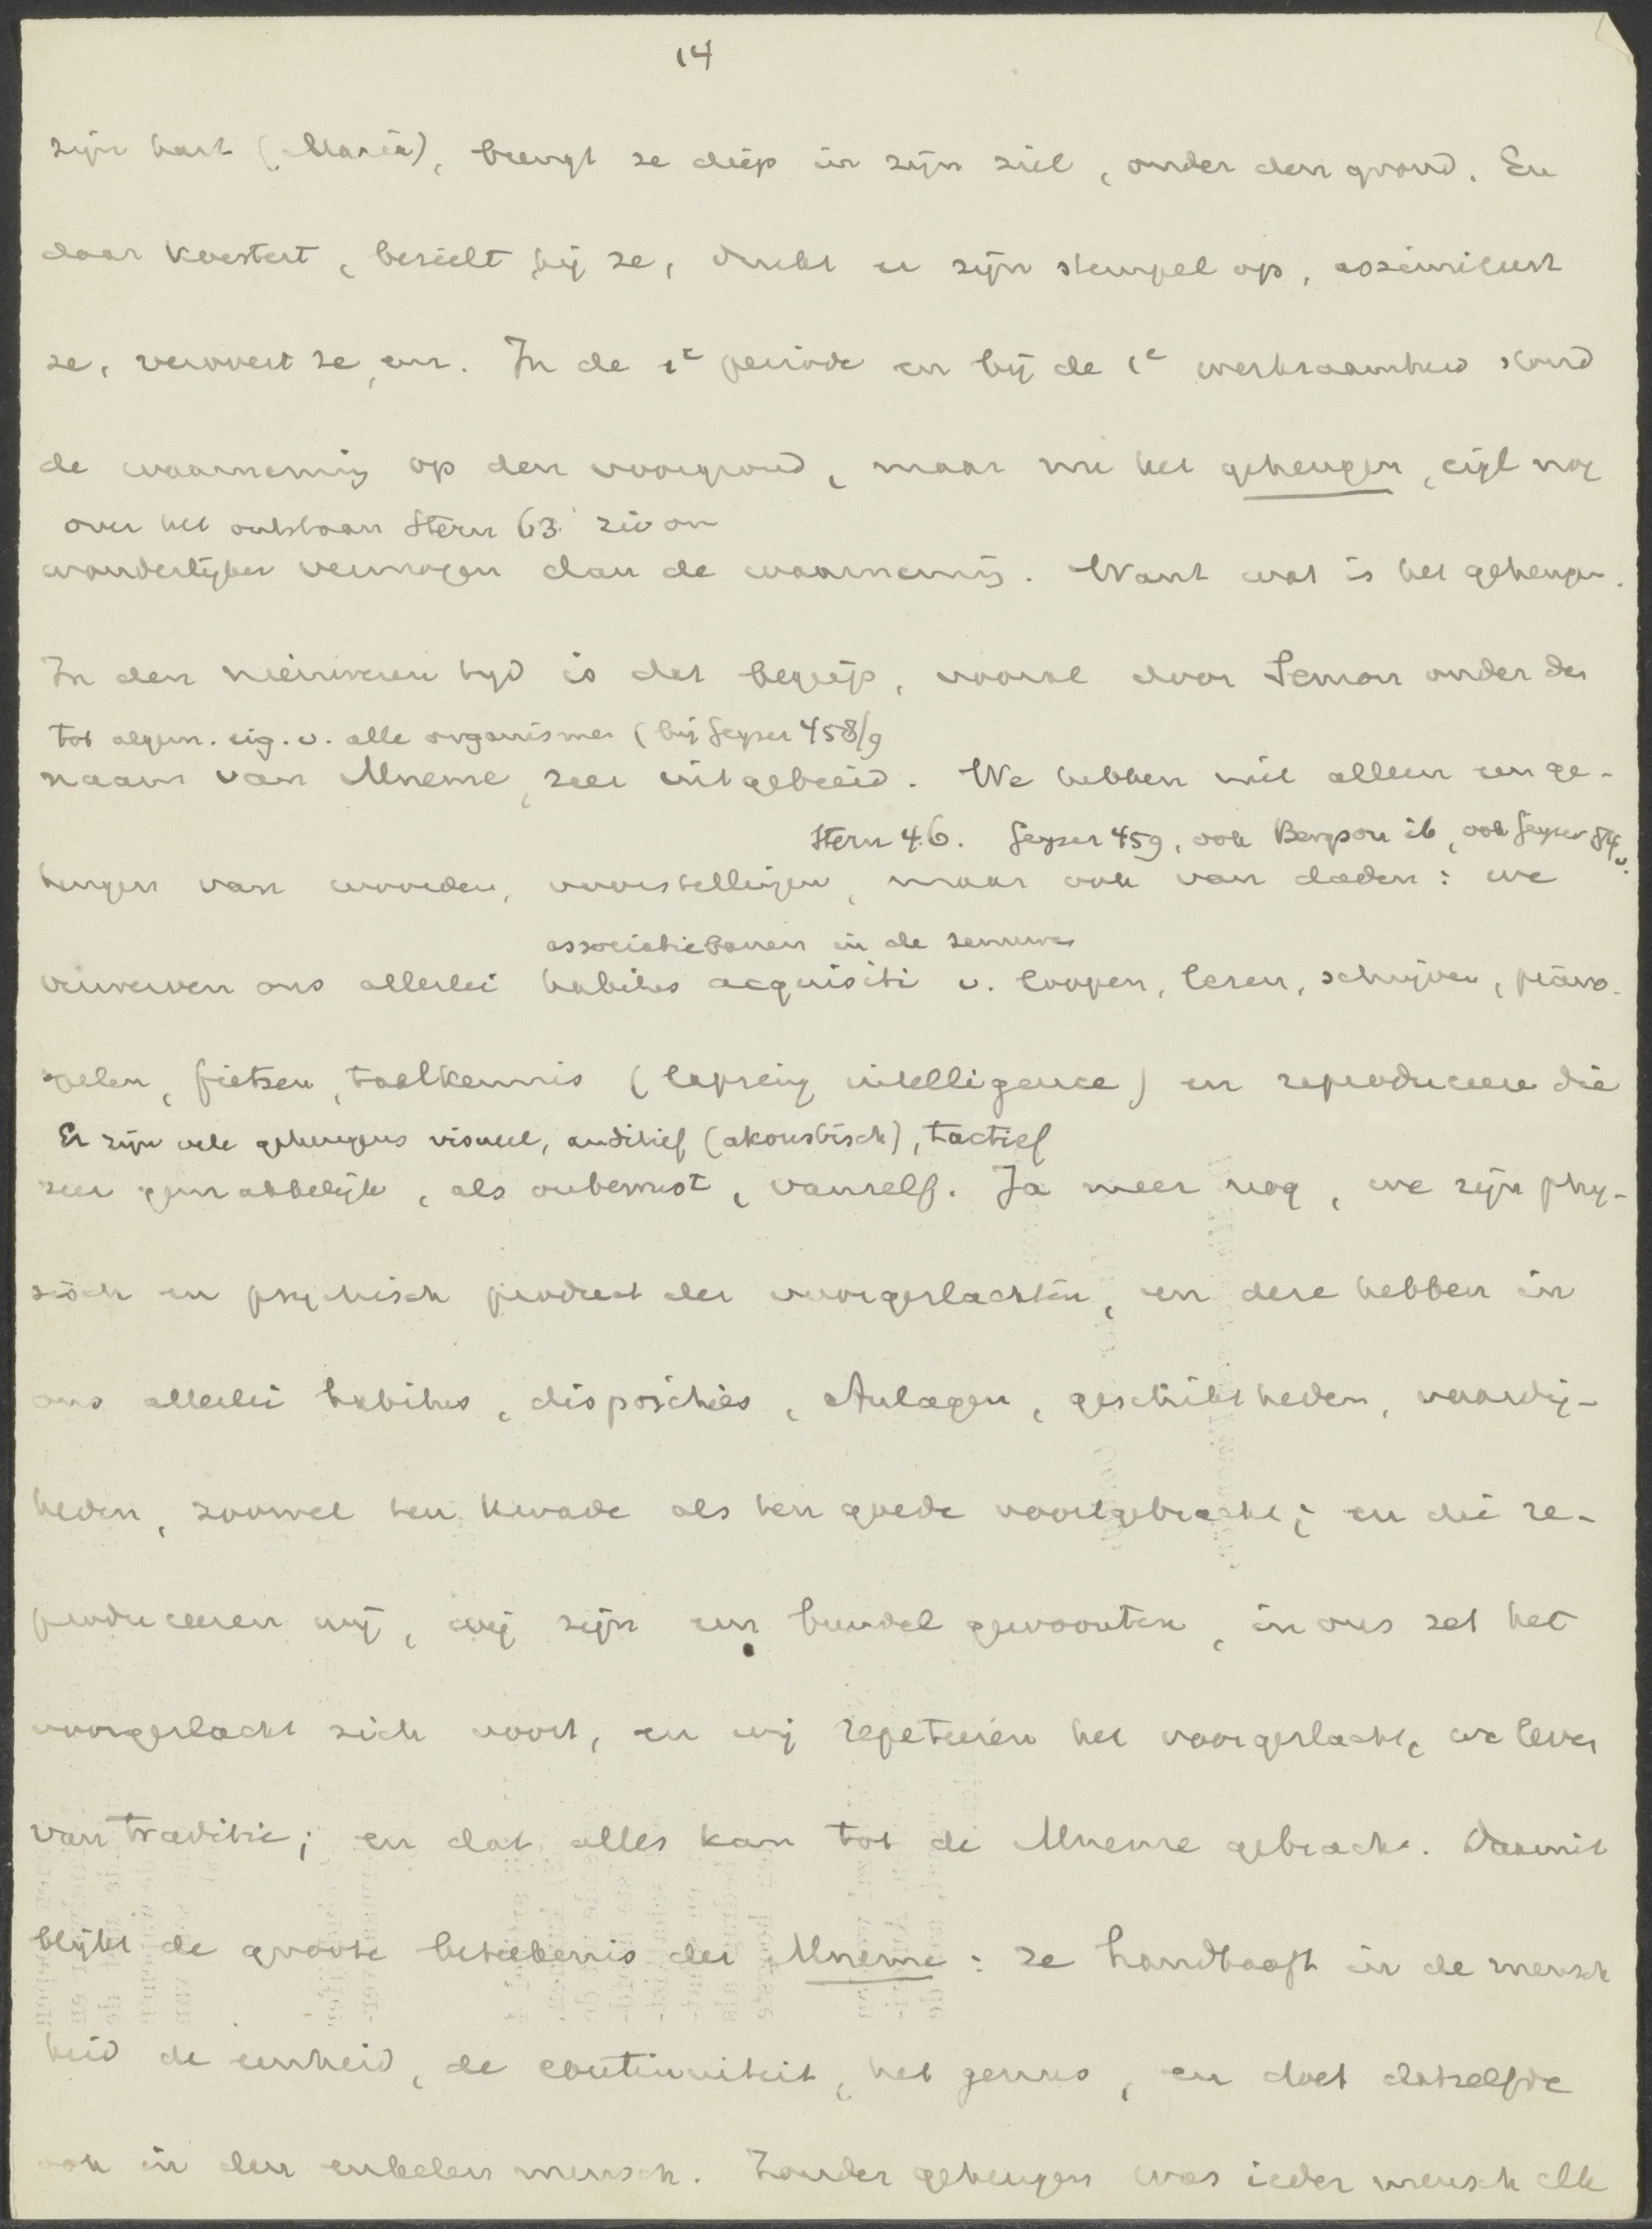 14
zijn hart (Maria), brengt ze diep in zijn ziel, onder den grond. En
daar koestert, bezielt hij ze, drukt er zijn stempel op, assimileert
ze, verwerkt ze, enz. In de 1e periode en bij de 1e werkzaamheid stond
de waarneming op den voorgrond, maar nu het geheugen, eigl nog
over het ontstaan Stern 63
wonderlijker vermogen dan de waarneming. Want wat is het geheugen.
In den nieuweren tijd is dat begrip, vooral door Semon onder den
tot algem. eig. v. alle organismen (bij Geyser 458/9
naam van Mneme, zeer uitgebreid. We hebben niet alleen een ge-
Stern 46. Geyser 459, ook Bergson ib, ook Geyser
heugen van woorden, voorstellingen, maar ook van daden: we
associatiebanen in de zenuwen
verwerven ons allerlei habitus acquisiti v. loopen, lezen, schrijven, piano-
spelen, fietsen, taalkennis (lapsing intelligence) en reproduceren die
Er zijn vele geheugens visueel, auditief (akoustisch), tactief
zeer gemakkelijk, als onbewust, vanzelf. Ja meer nog, we zijn phy-
sisch en psychisch product der voorgeslachten, en deze hebben in
ons allerlei habitus, disposities, Anlagen, geschiktheden, vaardig-
heden, zoowel ten kwade als ten goede voortgebracht; en die re-
produceeren wij, wij zijn een bundel gewoonten, in ons zet het
voorgeslacht zich voort, en wij repeteeren het voorgeslacht, we leven
van traditie; en dat alles kan tot de Mneme gebracht. Daaruit
blijkt de groote beteekenis der Mneme: ze handhaaft in de mensch
heid de eenheid, de continuiteit, het genus, en doet datzelfde
ook in den enkelen mensch. Zonder geheugen was ieder mensch elk